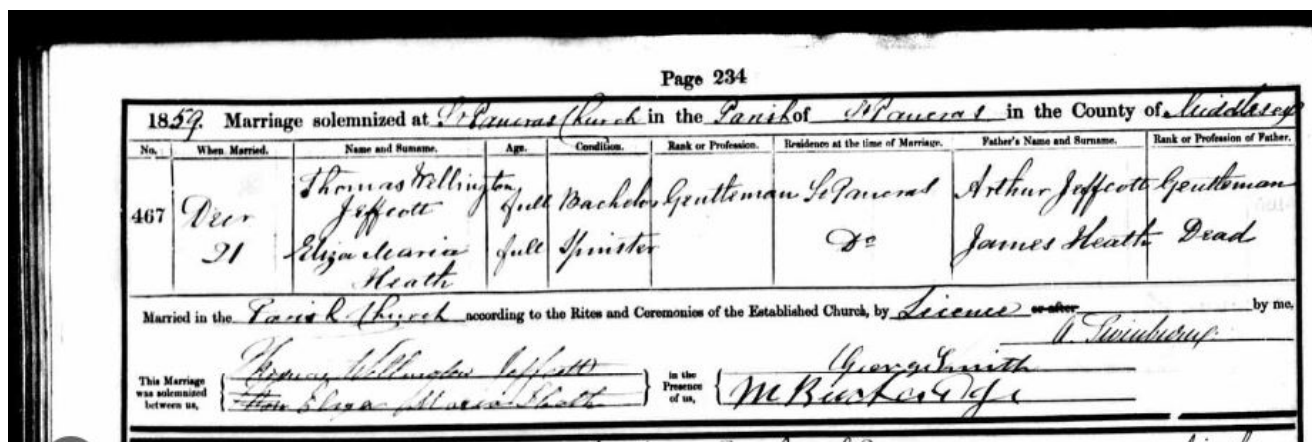 Page 234
1859. Marriage solemnized at St Pancras Church in the Parish of St Pancras in the County of Middlesex
No. When Married. Name and Surname. Age. Condition. Rank or Profession. Residence at the time of Marriage. Father's Name and Surname. Rank or Profession of Father.
467 Decr 21 Thomas Wellington Jeffcott full Bachelor Gentleman St Pancras Arthur Jeffcott Gentleman
Eliza Maria Heath full Spinster Do James Heath Dead
Married in the Parish Church according to the Rites and Ceremonies of the Established Church, by Licence or after by me,
This Marriage was solemnized between us, Thomas Wellington Jeffcott in the Presence of us, George Smith
Eliza Maria Heath M